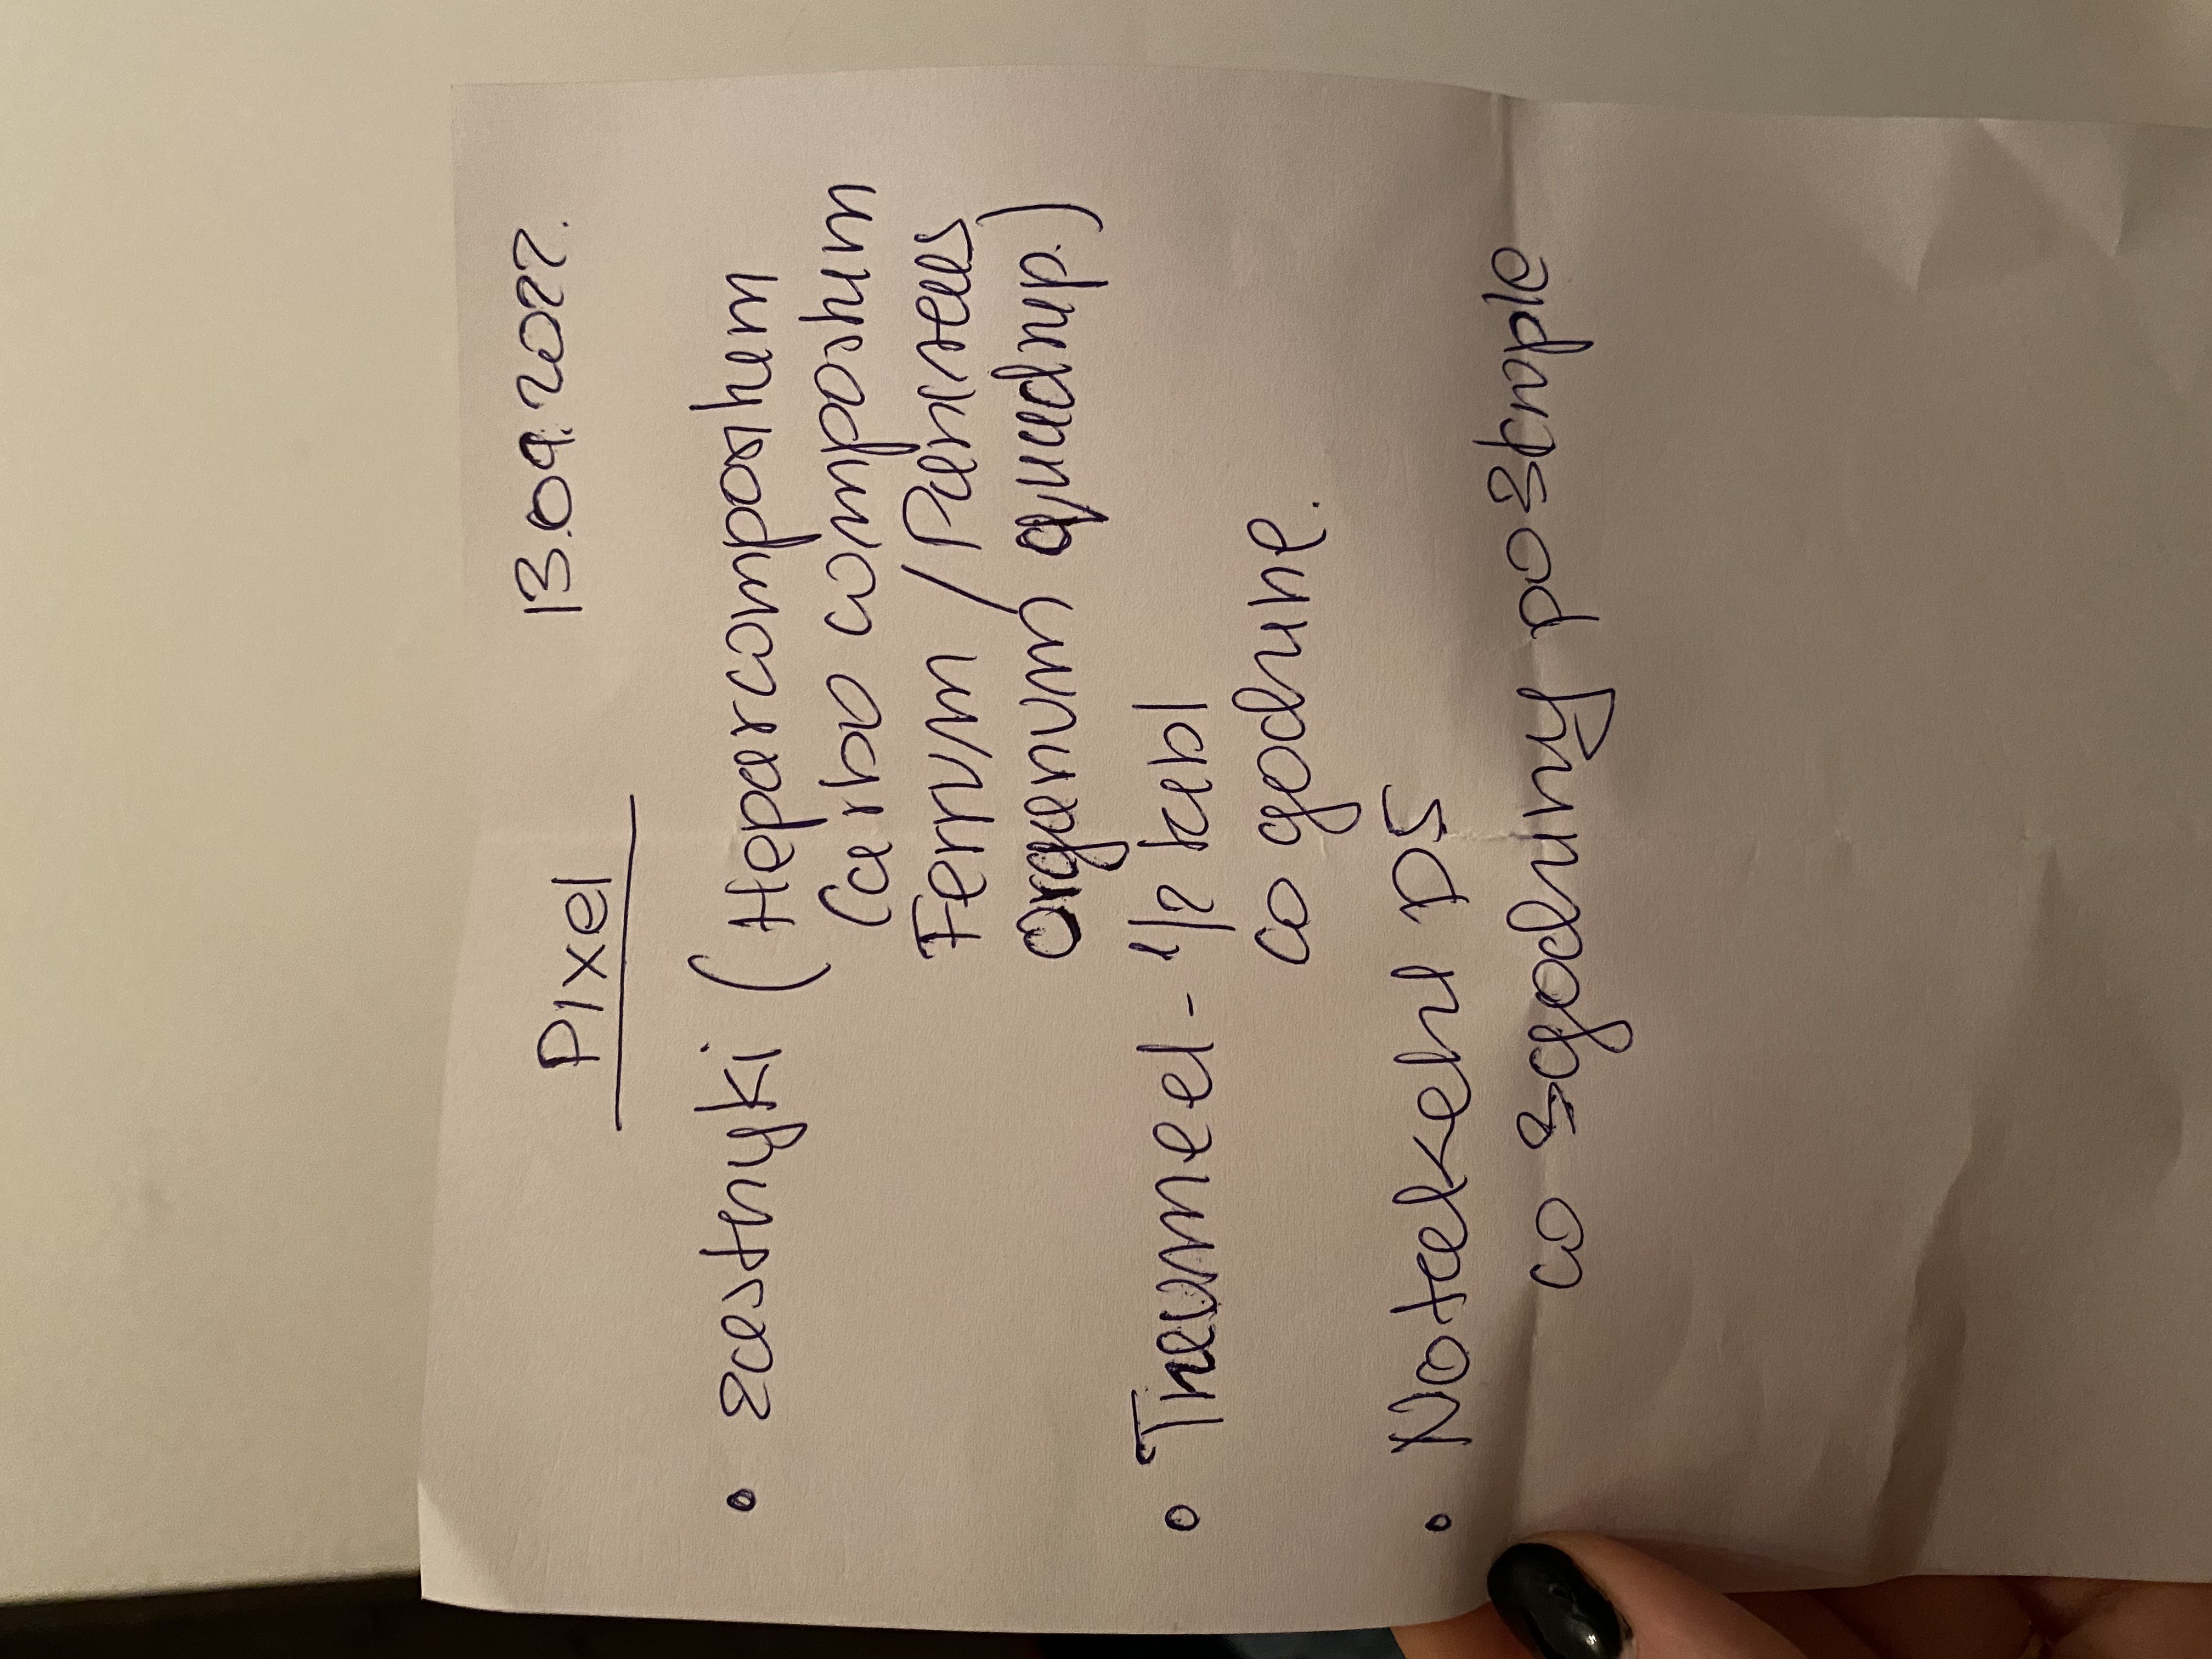 Pixel 13.09.2022.
• zastrzyki (Heparcompositum
Carbo compositum
Ferrum / Pancreas
Organum quadrup.)
• Traumeel - 1/2 tabl
co godzinę.
• Notakehl D5
co 3godziny po 3krople